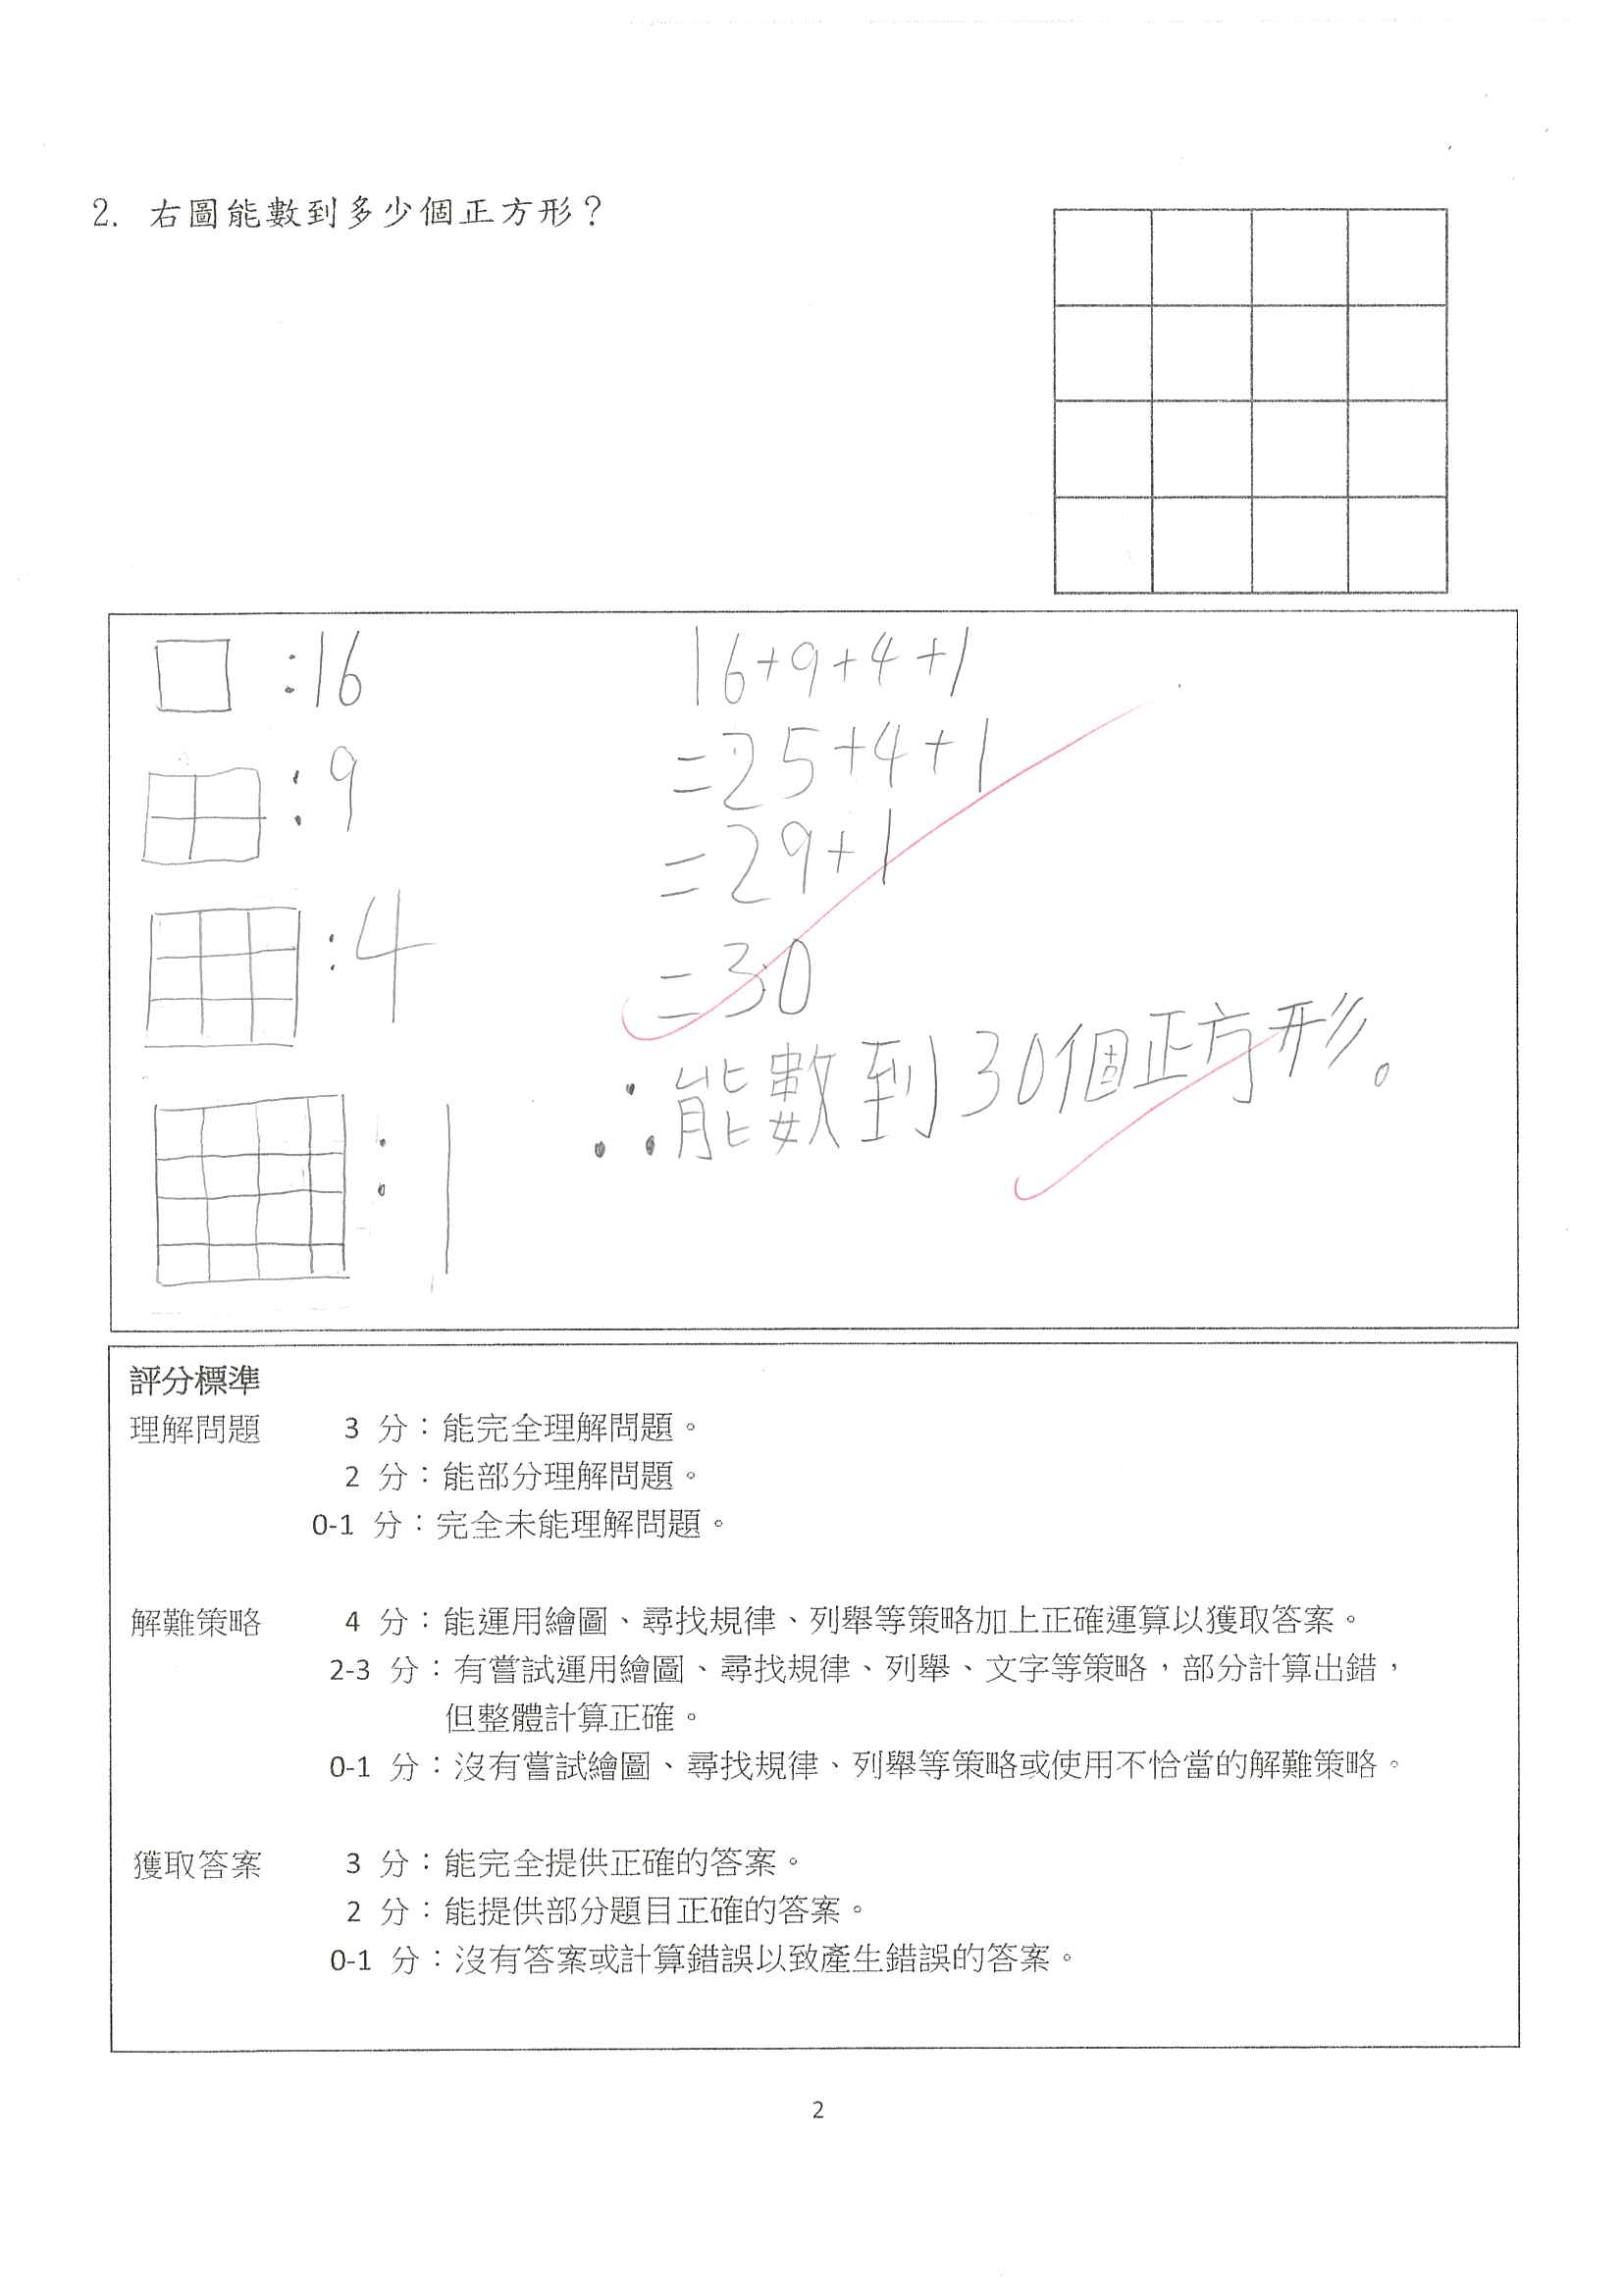 2. 右圖能數到多少個正方形？
:16
:9
:4
:1
16+9+4+1
=25+4+1
=29+1
=30
∴能數到30個正方形。
評分標準
理解問題 3 分：能完全理解問題。
2 分：能部分理解問題。
0-1 分：完全未能理解問題。
解難策略 4 分：能運用繪圖、尋找規律、列舉等策略加上正確運算以獲取答案。
2-3 分：有嘗試運用繪圖、尋找規律、列舉、文字等策略，部分計算出錯，
但整體計算正確。
0-1 分：沒有嘗試繪圖、尋找規律、列舉等策略或使用不恰當的解難策略。
獲取答案 3 分：能完全提供正確的答案。
2 分：能提供部分題目正確的答案。
0-1 分：沒有答案或計算錯誤以致產生錯誤的答案。
2